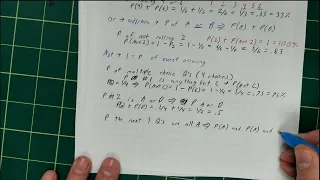 P(2) = 1/6 + 1/6 = 2/6 = 1/3 = .33 = 33%
or → addition → P of A or B ⇒ P(A) + P(B)
P of not rolling 2 P(2) + P(not 2) = 1 = 100%
P(not 2) = 1 - P2 = 1 - 1/6 = 5/6 = .83
Not → 1 - P of event occuring
P of multiple choice Q's (4 choices)
P #1 is anything but C → P(not C)
P(not C) = 1 - P(C) = 1 - 1/4 = 3/4 = .75 = 75%
P #2 is A or D ⇒ P A or D
P(A) + P(D) = 1/4 + 1/4 = 1/2 = .5
P the next 3 Q's are all A ⇒ P(A) and P(A) and